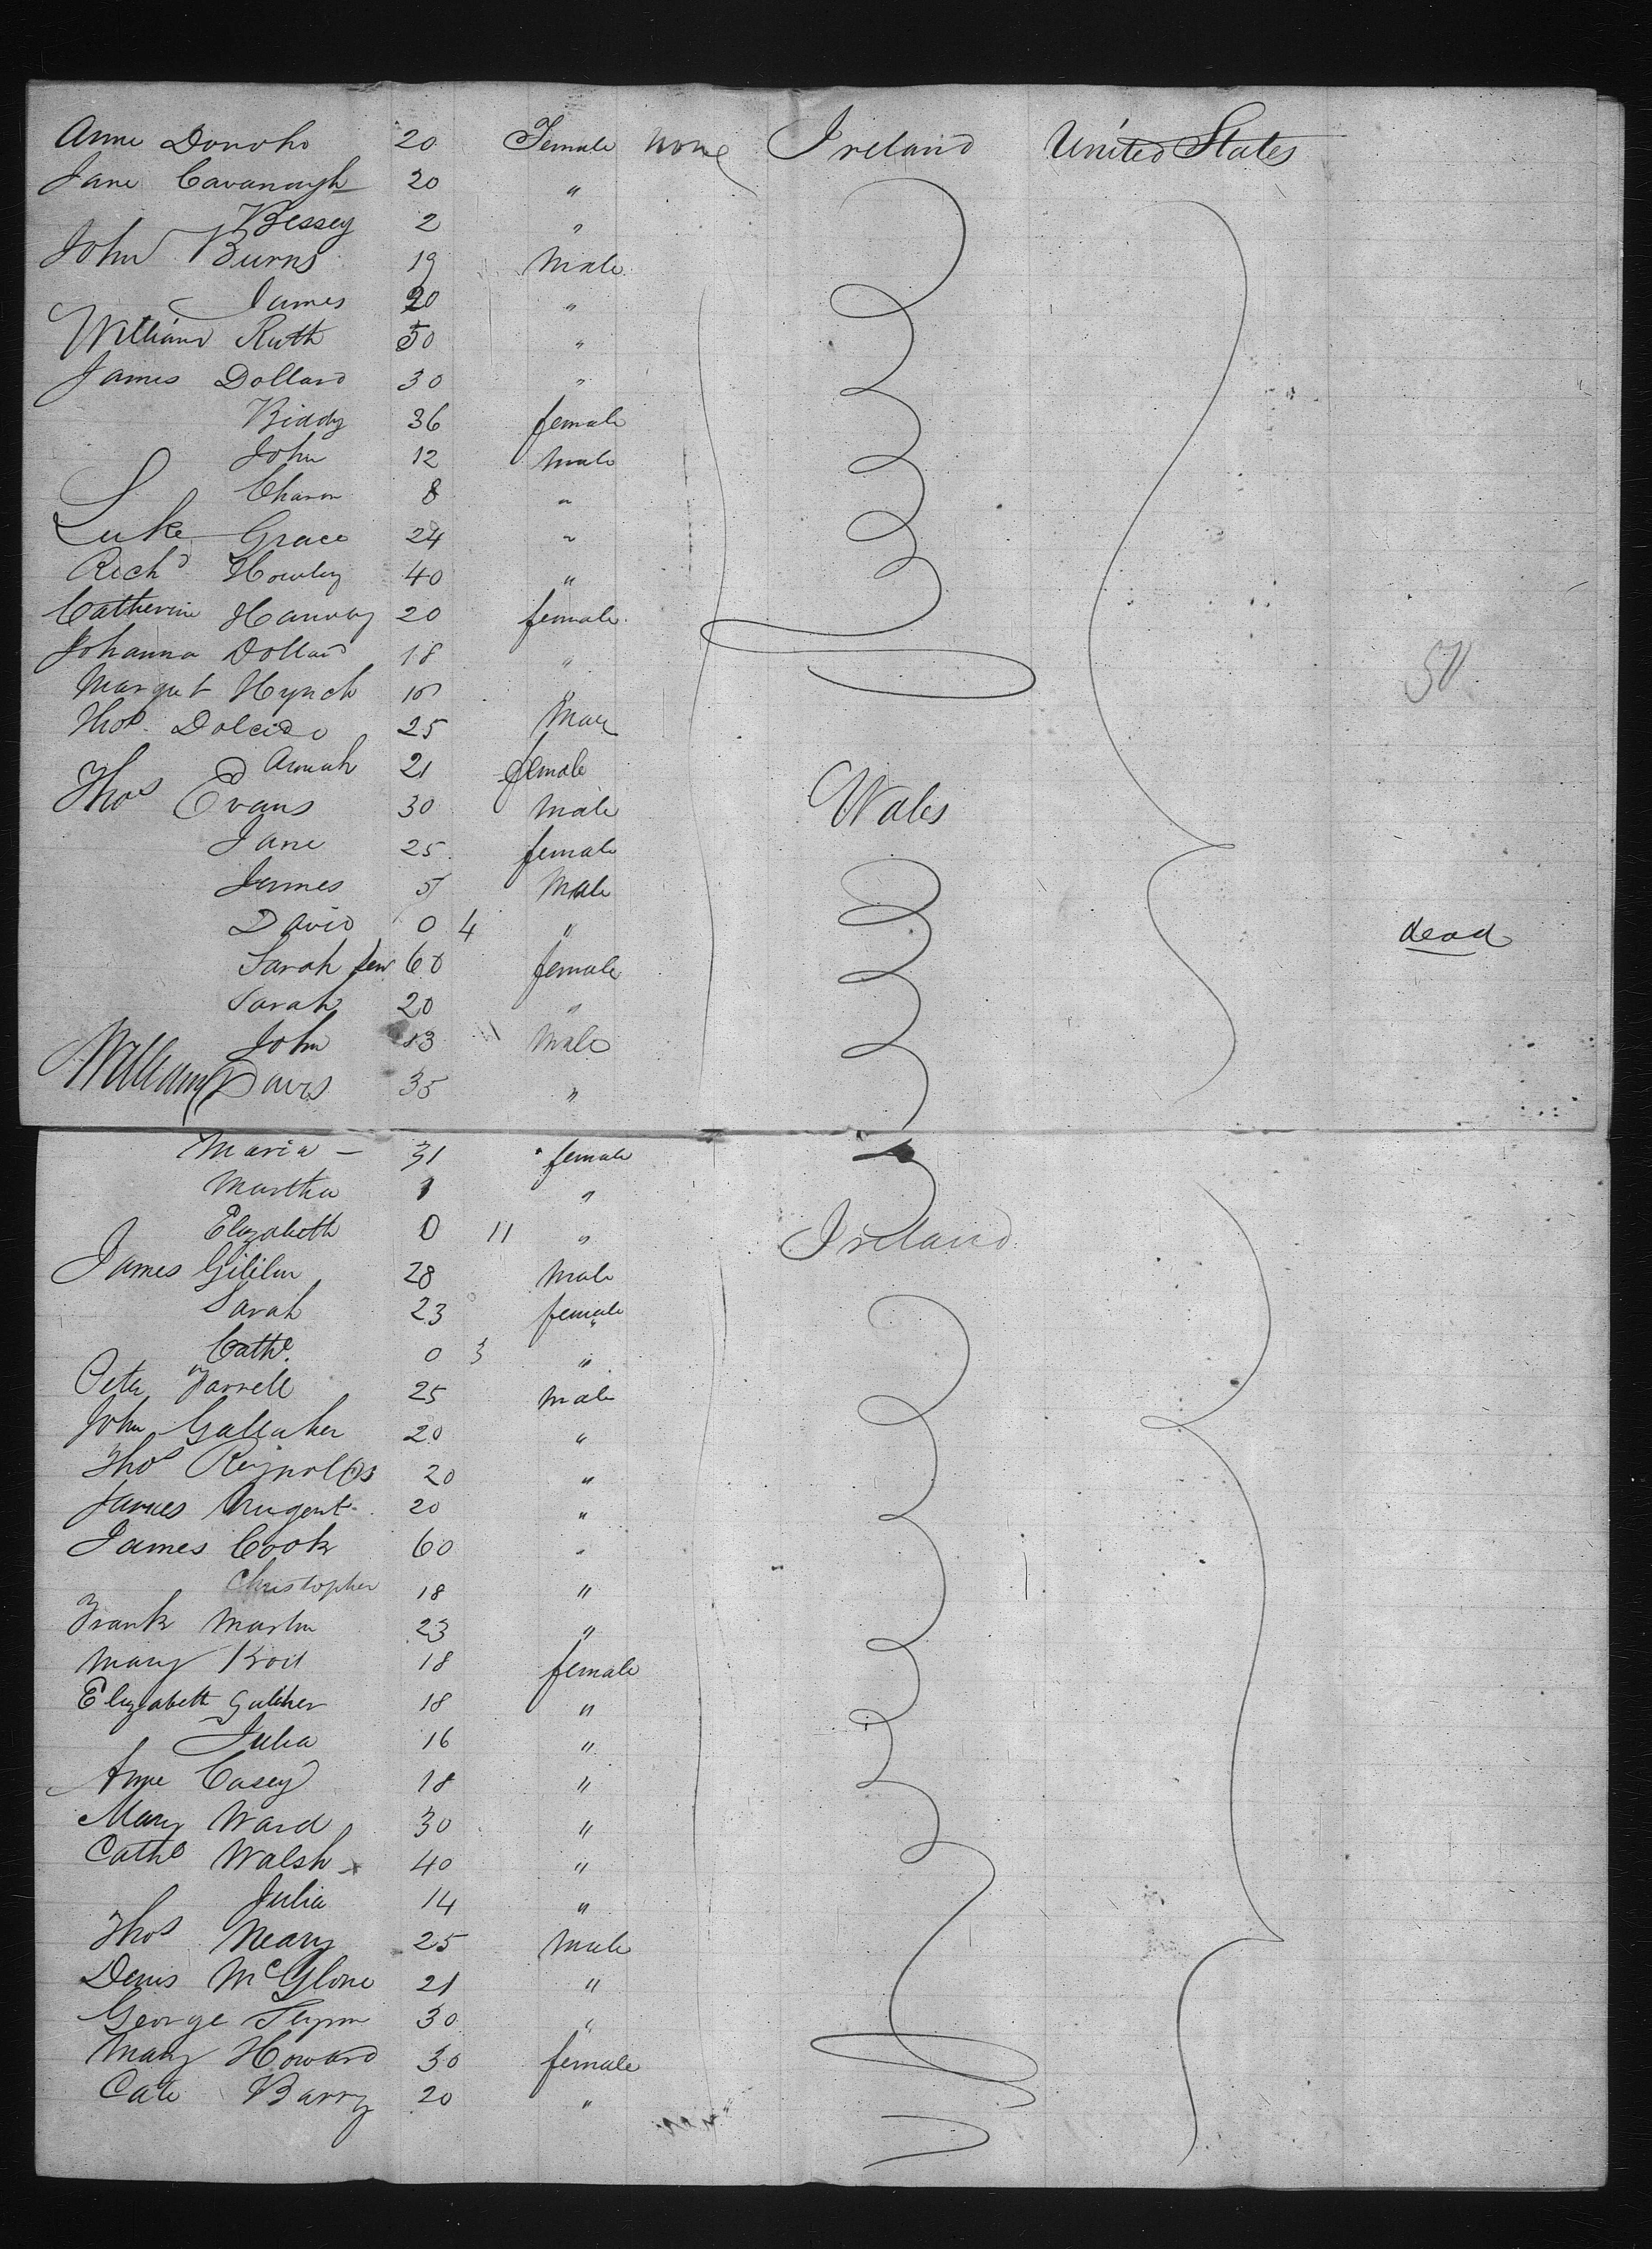 Anne Donoho 20 Female none Ireland United States
Jane Cavanaugh 20 "
Bessey 2 "
John Burns 19 Male
James 20 "
William Ruth 50 "
James Dollard 30 "
Biddy 36 female
John 12 Male
8 "
Luke Grace 24 "
Richd Howley 40 "
Catherine 20 female
Johanna Dollard 18 "
Margret Hynch "
Thos. 25 Male
21 female
Thos Evans 30 Male Wales
Jane 25 female
James 5 Male
David 0 4 " dead
Sarah Sen 60 female
Sarah 20 "
John 13 Male
William Davis 35 "
Maria — 31 female
Martha 1 "
Elizabeth 0 11 " Ireland
James 28 Male
Sarah 23 female
Cathe. 0 3 "
Peter Farrell 25 Male
John Gallaher 20 "
Thos Reynolds 20 "
James Nugent 20 "
James Cook 60 "
Christopher 18 "
Frank Martin 23 "
Mary 18 female
Elizabeth 18 "
Julia 16 "
Anne Casey 18 "
Mary Ward 30 "
Cathe Walsh 40 "
Julia 14 "
Thos Neary 25 Male
Denis McGlone 21 "
George Flynn 30 "
Mary Howard 30 female
Cate Barry 20 "